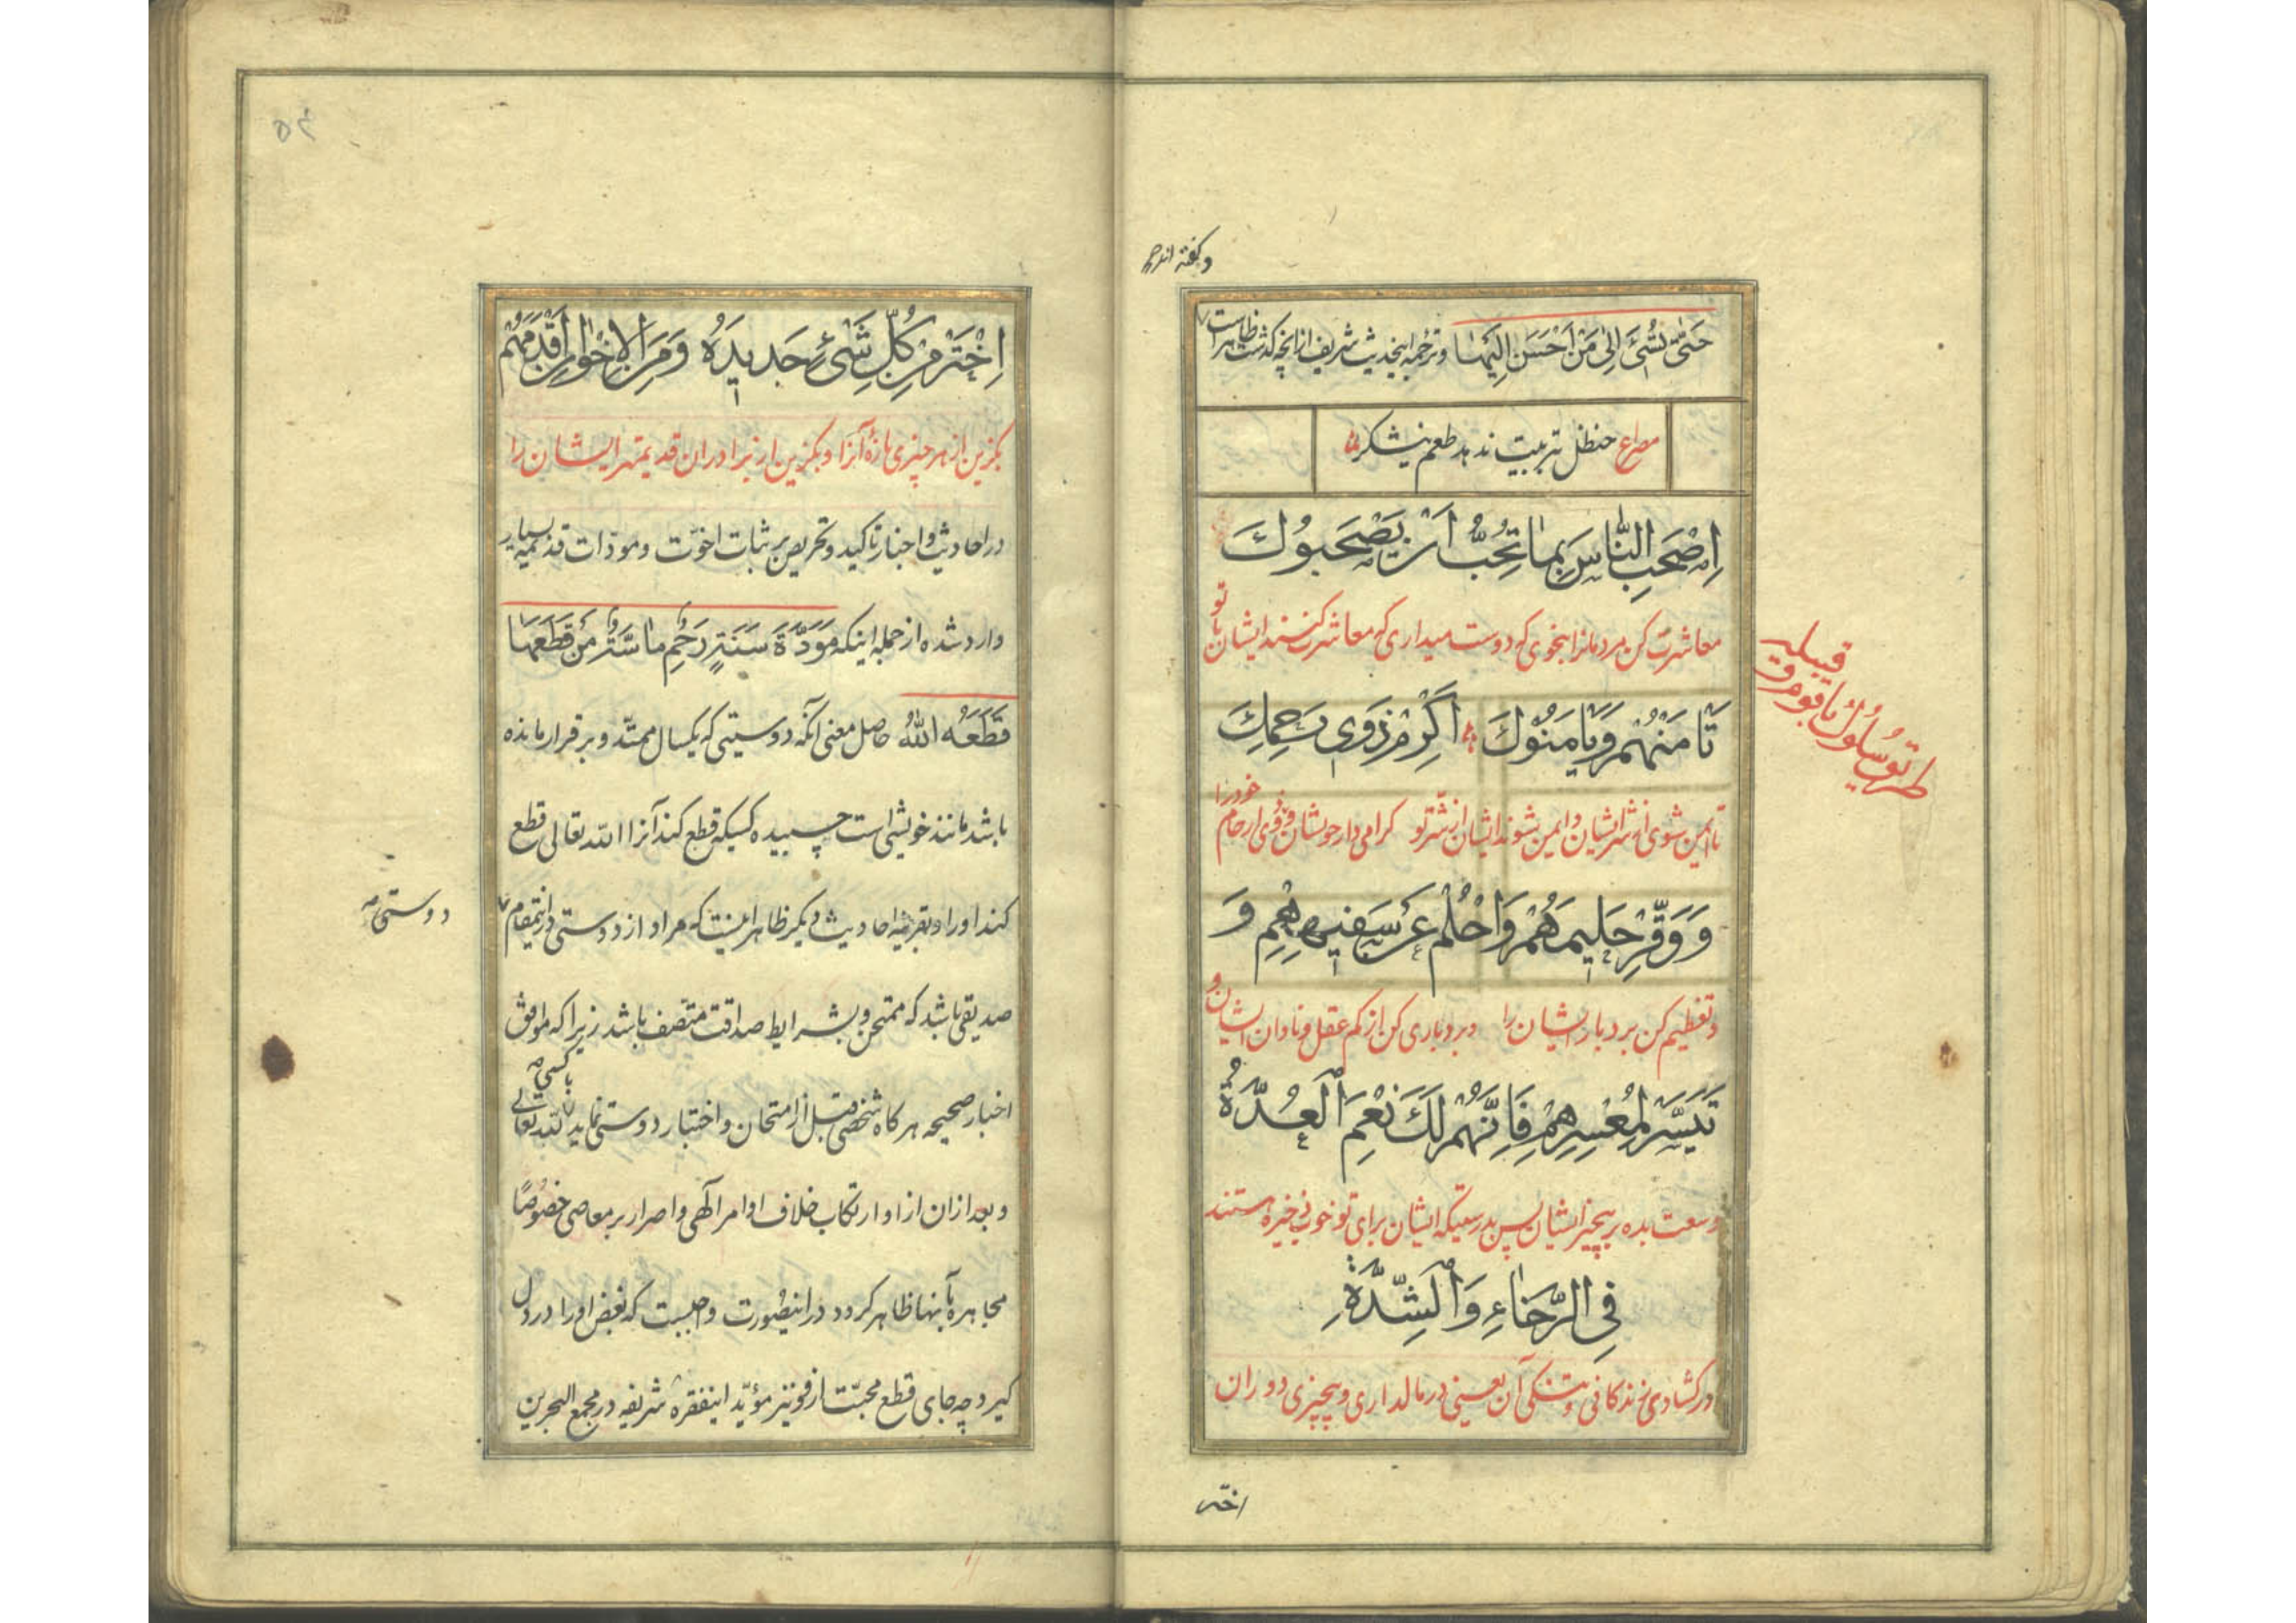 و گفته اند صح
حَتّٰی تُسْیَٔ اِلٰی مَنْ اَحْسَنَ اِلَیْهٰا و ترجمه اینحدیث شریف از انچه گذشت ظاهر است
مصراع حنظل تربیت ندهد طعم نیشکر
اِصْحَبِ النّٰاسَ بِمٰا تُحِبُّ اَنْ یَصْحَبُوُكَ
معاشرت کن مردمانرا بنحوی که دوست میداری که معاشرت کنند ایشان با تو
تَاْمَنْهُمْ وَیَاْمَنُوْكَ اَكْرِمْ ذَوی رَحِمِكَ
تا ایمن شوی از شر ایشان و ایمن شوند ایشان از شر تو گرامی دار خویشان و ذوی ارحام خود را
وَ وَقِّرْ حَلیمَهُمْ وَاحْلُمْ عَنْ سَفیهِهِمِ وَ
و تعظیم کن بردبار ایشان را و بردباری کن از کم عقل و نادان ایشان و
تَیَسَّرْ لِمُعْسِرِهِمْ فَاِنَّهُمْ لَكَ نِعْمَ الْعُدَّةُ
وسعت بده بر بیچیز ایشان پس بدرستیکه ایشان برای تو خوب ذخیره هستند
فِی الرَّخٰاءِ وَالْشِدَّةِ
در گشادی زندگانی و تنگی آن یعنی در مالداری و بیچیزی دوران
قبیله
طریق سلوک با قوم و
اختر
۵۴
اِخْتَرْ مِنْ كُلِّ شَیْ‌ءٍ جَدیدَهُ وَ مِنَ الْاِخْوٰانِ اَقْدَمَهُمْ
بگزین از هر چیزی تازهٔ آنرا و بگزین از برادران قدیمتر ایشان را
در احادیث و اخبار تاکید و تحریص بر ثبات اخوّت و مودّات قدیمیه بسیار
وارد شده از جمله اینکه مَوَدَّةُ سَنَةٍ رَحِمٌ مٰاسَّةٌ مَنْ قَطَعَهٰا
قَطَعَهُ اللّٰهُ حاصل معنی آنکه دوستیی که یکسال ممتدّ و برقرار مانده
باشد مانند خویشی است چسبیده کسیکه قطع کند آنرا اللّه تعالی قطع
کند او را و بقرینه احادیث دیگر ظاهر اینست که مراد از دوستی در اینمقام
دوستی صح
صدیقی باشد که ممتحن و بشرایط صداقت متصف باشد زیرا که موافق
اخبار صحیحه هرگاه شخصی قبل از امتحان و اختبار دوستی نماید با کسی لله تعالی
و بعد از ان از او ارتکاب خلاف اوامر آلهی و اصرار بر معاصی خصوصًا
مجاهره بآنها ظاهر گردد در اینصورت واجبست که بغض او را در دل
گیرد چه جای قطع محبّت از او نیز مؤیّد اینفقره شریفه در مجمع البحرین